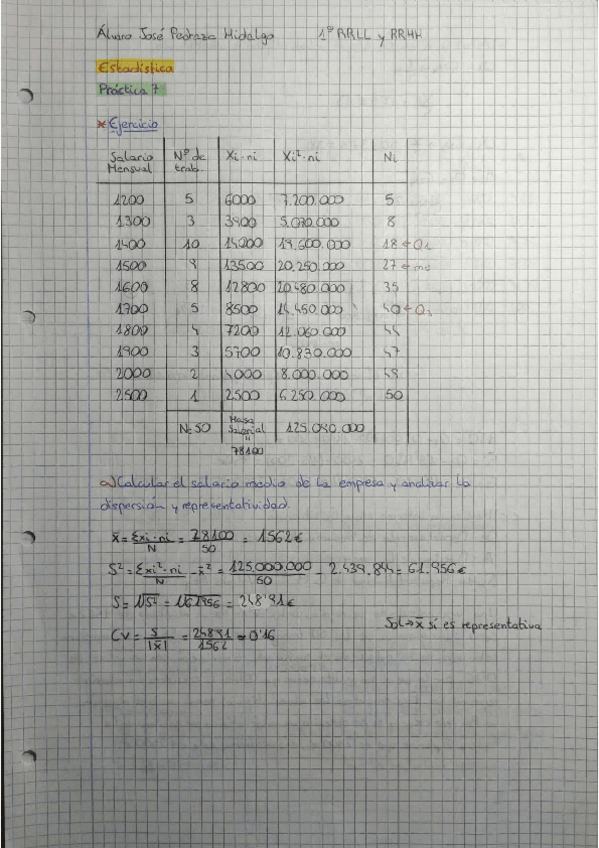 Álvaro José Pedraza Hidalgo 1º RRLL y RRHH
Estadística
Práctica 7
* Ejercicio
Salario Mensual Nº de trab. Xi·ni Xi²·ni Ni
1200 5 6000 7.200.000 5
1300 3 3900 5.070.000 8
1400 10 14000 19.600.000 18 ← Q1
1500 9 13500 20.250.000 27 ← me
1600 8 12800 20.480.000 35
1700 5 8500 14.450.000 40 ← Q3
1800 4 7200 12.960.000 44
1900 3 5700 10.830.000 47
2000 2 4000 8.000.000 49
2500 1 2500 6.250.000 50
N=50 Masa Salarial 125.090.000
"
78100
a) Calcular el salario medio de la empresa y analizar la
dispersión y representatividad.
x̄ = Σxi·ni / N = 78100 / 50 = 1562 €
S² = Σxi²·ni / N - x̄² = 125.000.000 / 50 - 2.439.844 = 61.956 €
S = √S² = √61956 = 248'91 €
Sol → x̄ sí es representativa
CV = S / |x̄| = 248'91 / 1562 = 0'16